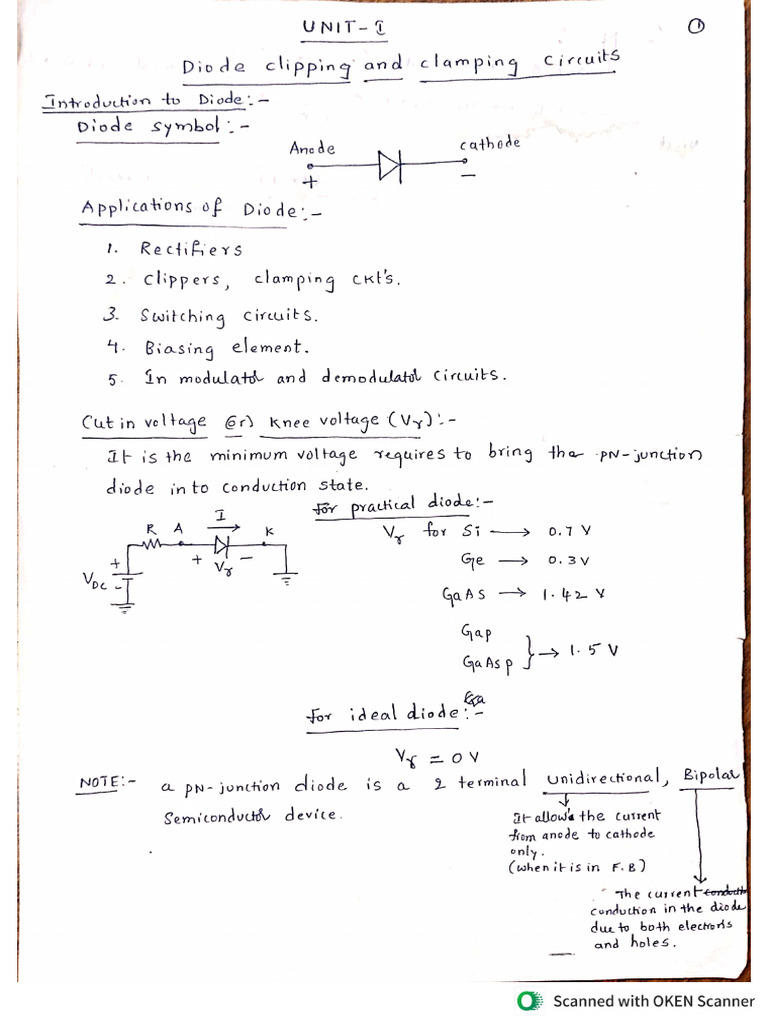 UNIT-I
①
Diode clipping and clamping Circuits
Introduction to Diode:-
Diode symbol:-
Anode
cathode
+
-
Applications of Diode:-
1. Rectifiers
2. Clippers, clamping ckt's.
3. Switching circuits.
4. Biasing element.
5. In modulator and demodulator circuits.
Cut in voltage (or) knee voltage (Vγ):-
It is the minimum voltage requires to bring the PN-junction
diode in to conduction state.
For practical diode:-
Vγ for Si → 0.7 V
Ge → 0.3 V
GaAs → 1.42 V
Gap
GaAsp } → 1.5 V
R A I K
+ Vγ -
+
VDC
-
For ideal diode:-
Vγ = 0 V
NOTE:- a PN-junction diode is a 2 terminal Unidirectional, Bipolar
Semiconductor device.
It allow's the current
from anode to cathode
only.
(when it is in F.B)
The current
conduction in the diode
due to both electrons
and holes.
Scanned with OKEN Scanner